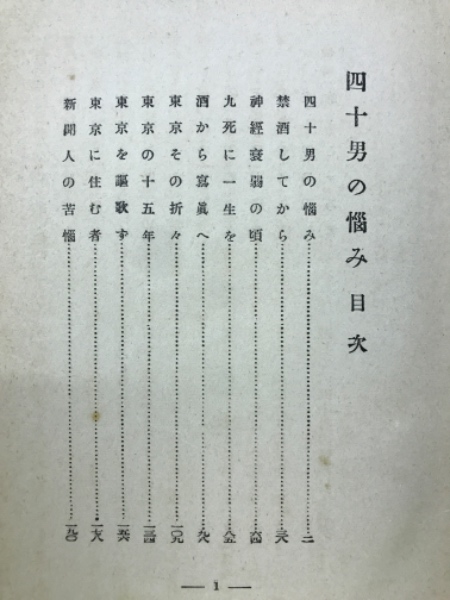 四十男の惱み 目次
四十男の惱み……二
禁酒してから……三八
神經衰弱の頃……六四
九死に一生を……八五
酒から寫眞へ……九八
東京その折々……一〇九
東京の十五年……一三四
東京を謳歌す……一五六
東京に住む者……一六八
新聞人の苦惱……一九〇
— 1 —